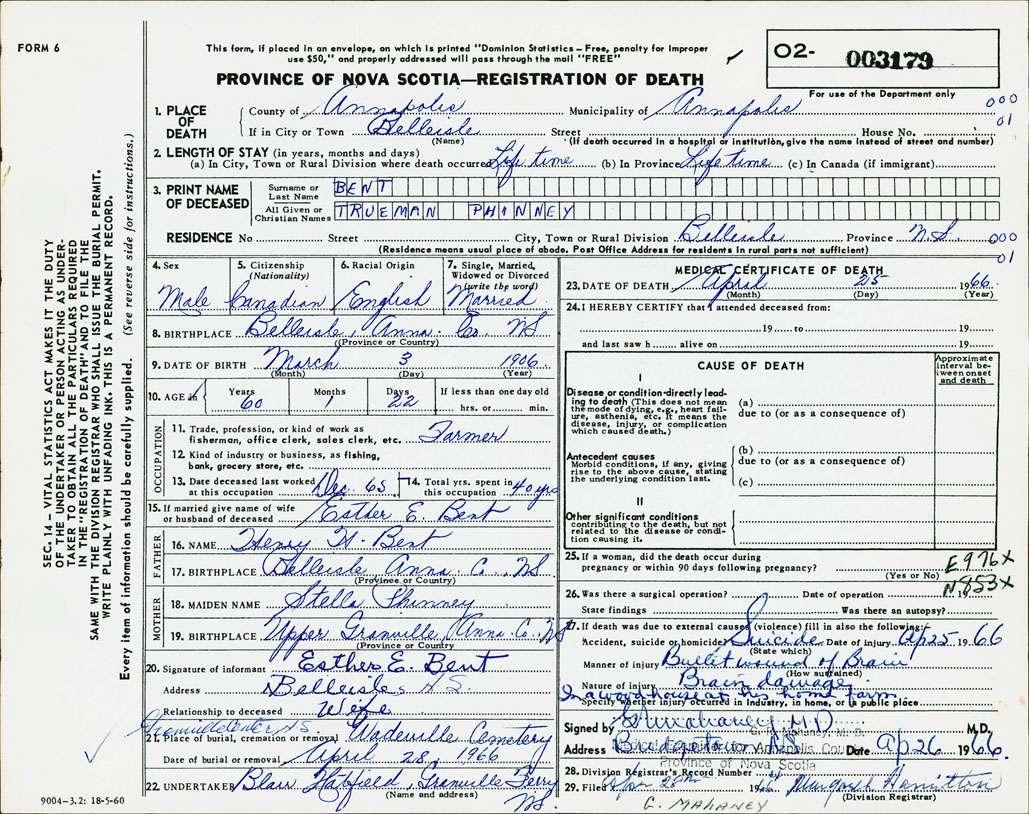 FORM 6
This form, if placed in an envelope, on which is printed "Dominion Statistics – Free, penalty for improper
use $50," and properly addressed will pass through the mail "FREE"
PROVINCE OF NOVA SCOTIA—REGISTRATION OF DEATH
O2- 003179
For use of the Department only
1. PLACE OF DEATH
County of Annapolis Municipality of Annapolis 000
If in City or Town Belleisle Street House No. 01
(Name) (If death occurred in a hospital or institution, give the name instead of street and number)
2. LENGTH OF STAY (in years, months and days)
(a) In City, Town or Rural Division where death occurred Life time (b) In Province Life time (c) In Canada (if immigrant)
3. PRINT NAME OF DECEASED
Surname or Last Name BENT
All Given or Christian Names TRUEMAN PHINNEY
RESIDENCE No Street City, Town or Rural Division Belleisle Province N.S. 000
(Residence means usual place of abode. Post Office Address for residents in rural parts not sufficient) 01
4. Sex Male
5. Citizenship (Nationality) Canadian
6. Racial Origin English
7. Single, Married, Widowed or Divorced (write the word) Married
8. BIRTHPLACE Belleisle, Anna. Co. NS
(Province or Country)
9. DATE OF BIRTH March 3 1906
(Month) (Day) (Year)
10. AGE in Years 60 Months 1 Days 22 If less than one day old
hrs. or min.
OCCUPATION
11. Trade, profession, or kind of work as
fisherman, office clerk, sales clerk, etc. Farmer
12. Kind of industry or business, as fishing,
bank, grocery store, etc.
13. Date deceased last worked at this occupation Dec 65
14. Total yrs. spent in this occupation 40 yrs
15. If married give name of wife
or husband of deceased Esther E. Bent
FATHER
16. NAME Henry H. Bent
17. BIRTHPLACE Belleisle Anna. C. NS
(Province or Country)
MOTHER
18. MAIDEN NAME Stella Phinney
19. BIRTHPLACE Upper Granville, Anna. Co. NS
(Province or Country)
20. Signature of informant Esther E. Bent
Address Belleisle N.S.
Relationship to deceased Wife
Granville Center N.S.
21. Place of burial, cremation or removal Wadeville Cemetery
Date of burial or removal April 28, 1966
22. UNDERTAKER Blair Hatfield, Granville Ferry
(Name and address) NS.
MEDICAL CERTIFICATE OF DEATH
23. DATE OF DEATH April 25 1966
(Month) (Day) (Year)
24. I HEREBY CERTIFY that I attended deceased from:
19 to 19
and last saw h alive on 19
CAUSE OF DEATH
Approximate interval between onset and death
I
Disease or condition directly leading to death (This does not mean
the mode of dying, e.g., heart failure, asthenia, etc. It means the
disease, injury, or complication
which caused death.)
(a)
due to (or as a consequence of)
(b)
due to (or as a consequence of)
(c)
Antecedent causes
Morbid conditions, if any, giving
rise to the above cause, stating
the underlying condition last.
II
Other significant conditions
contributing to the death, but not
related to the disease or condition causing it.
25. If a woman, did the death occur during
pregnancy or within 90 days following pregnancy?
(Yes or No)
E976X
N853X
26. Was there a surgical operation? Date of operation
State findings Was there an autopsy?
27. If death was due to external causes (violence) fill in also the following:
Accident, suicide or homicide? Suicide Date of injury Ap 25 1966
(State which)
Manner of injury Bullet wound of Brain
(How sustained)
Nature of injury Brain damage
In a woodhouse at his home farm.
Specify whether injury occurred in Industry, in home, or in public place
Signed by G Mahaney M.D. M.D.
G. Mahaney, M. D.
Address Bridgetown NS Date Ap 26 1966
Medical Examiner for Annapolis Cou
Province of Nova Scotia
28. Division Registrar's Record Number
29. Filed Apr 28th 1966 Margaret Hamilton
(Division Registrar)
G. MAHANEY
9004–3.2: 18-5-60
SEC. 14 – VITAL STATISTICS ACT MAKES IT THE DUTY
OF THE UNDERTAKER OR PERSON ACTING AS UNDER-
TAKER TO OBTAIN ALL THE PARTICULARS REQUIRED
IN THE "REGISTRATION OF DEATH" AND TO FILE THE
SAME WITH THE DIVISION REGISTRAR WHO SHALL ISSUE THE BURIAL PERMIT.
WRITE PLAINLY WITH UNFADING INK. THIS IS A PERMANENT RECORD.
Every item of information should be carefully supplied. (See reverse side for instructions.)